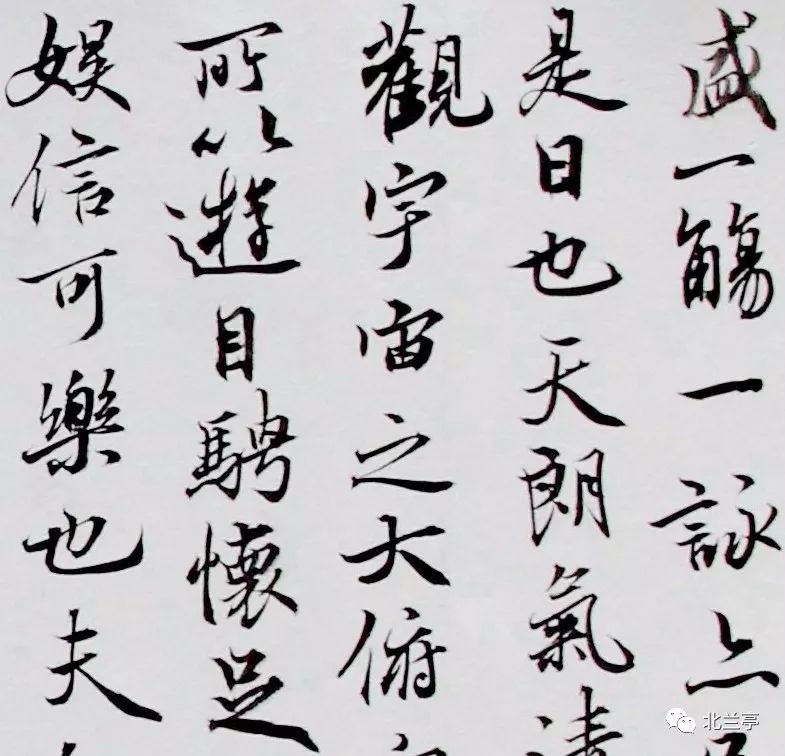 盛一觴一詠亦
是日也天朗氣清
觀宇宙之大俯
所以遊目騁懷足
娱信可樂也夫
北兰亭